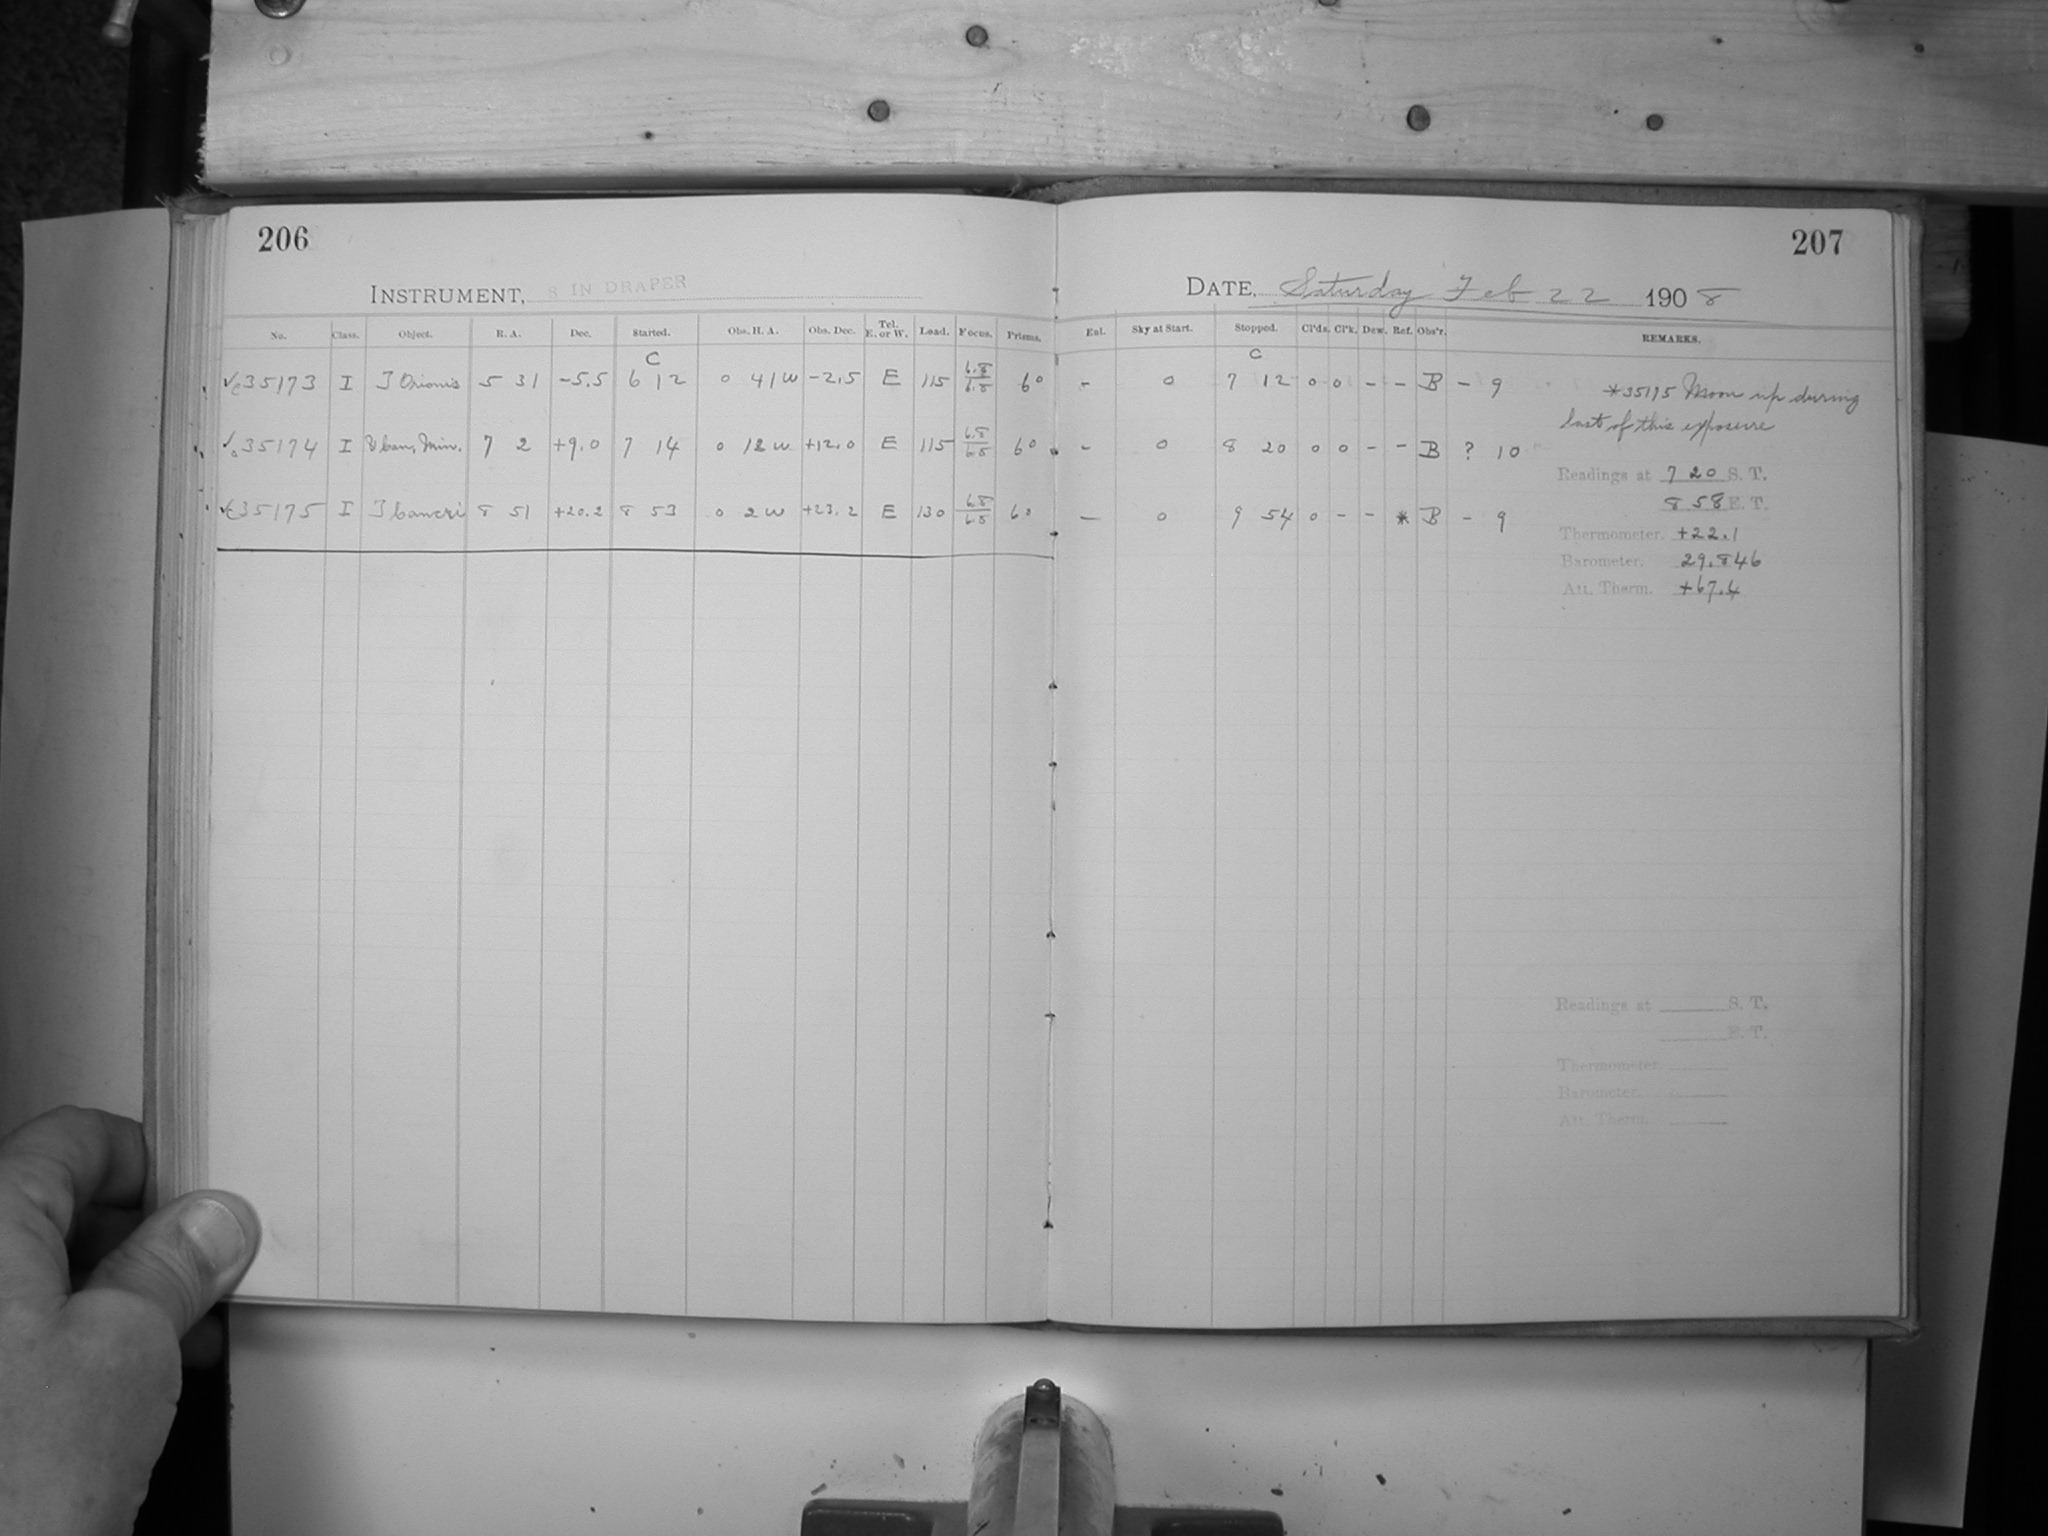 206
207
INSTRUMENT, 8 IN DRAPER
DATE, Saturday Feb 22 1908
No. Class. Object. R. A. Dec. Started. Obs. H. A. Obs. Dec. Tel. E. or W. Load. Focus. Prisms. Enl. Sky at Start. Stopped. Cl'ds. Cl'k. Dew. Ref. Obs'r. REMARKS.
C C
35173 I T Orionis 5 31 -5.5 6 12 0 41W -2.5 E 115 6.8/6.8 60 - 0 7 12 0 0 - - B - 9
35174 I Can, Min. 7 2 +9.0 7 14 0 12 W +12.0 E 115 6.8/6.8 60 - 0 8 20 0 0 - - B ? 10
35175 I T Cancri 8 51 +20.2 8 53 0 2W +23.2 E 130 6.8/6.8 60 - 0 9 54 0 - - * B - 9
*35175 Moon up during
last of this exposure
Readings at 7 20 S. T.
8 58 E. T.
Thermometer. +22.1
Barometer. 29.846
Att. Therm. +67.4
Readings at S. T.
E. T.
Thermometer.
Barometer.
Att. Therm.